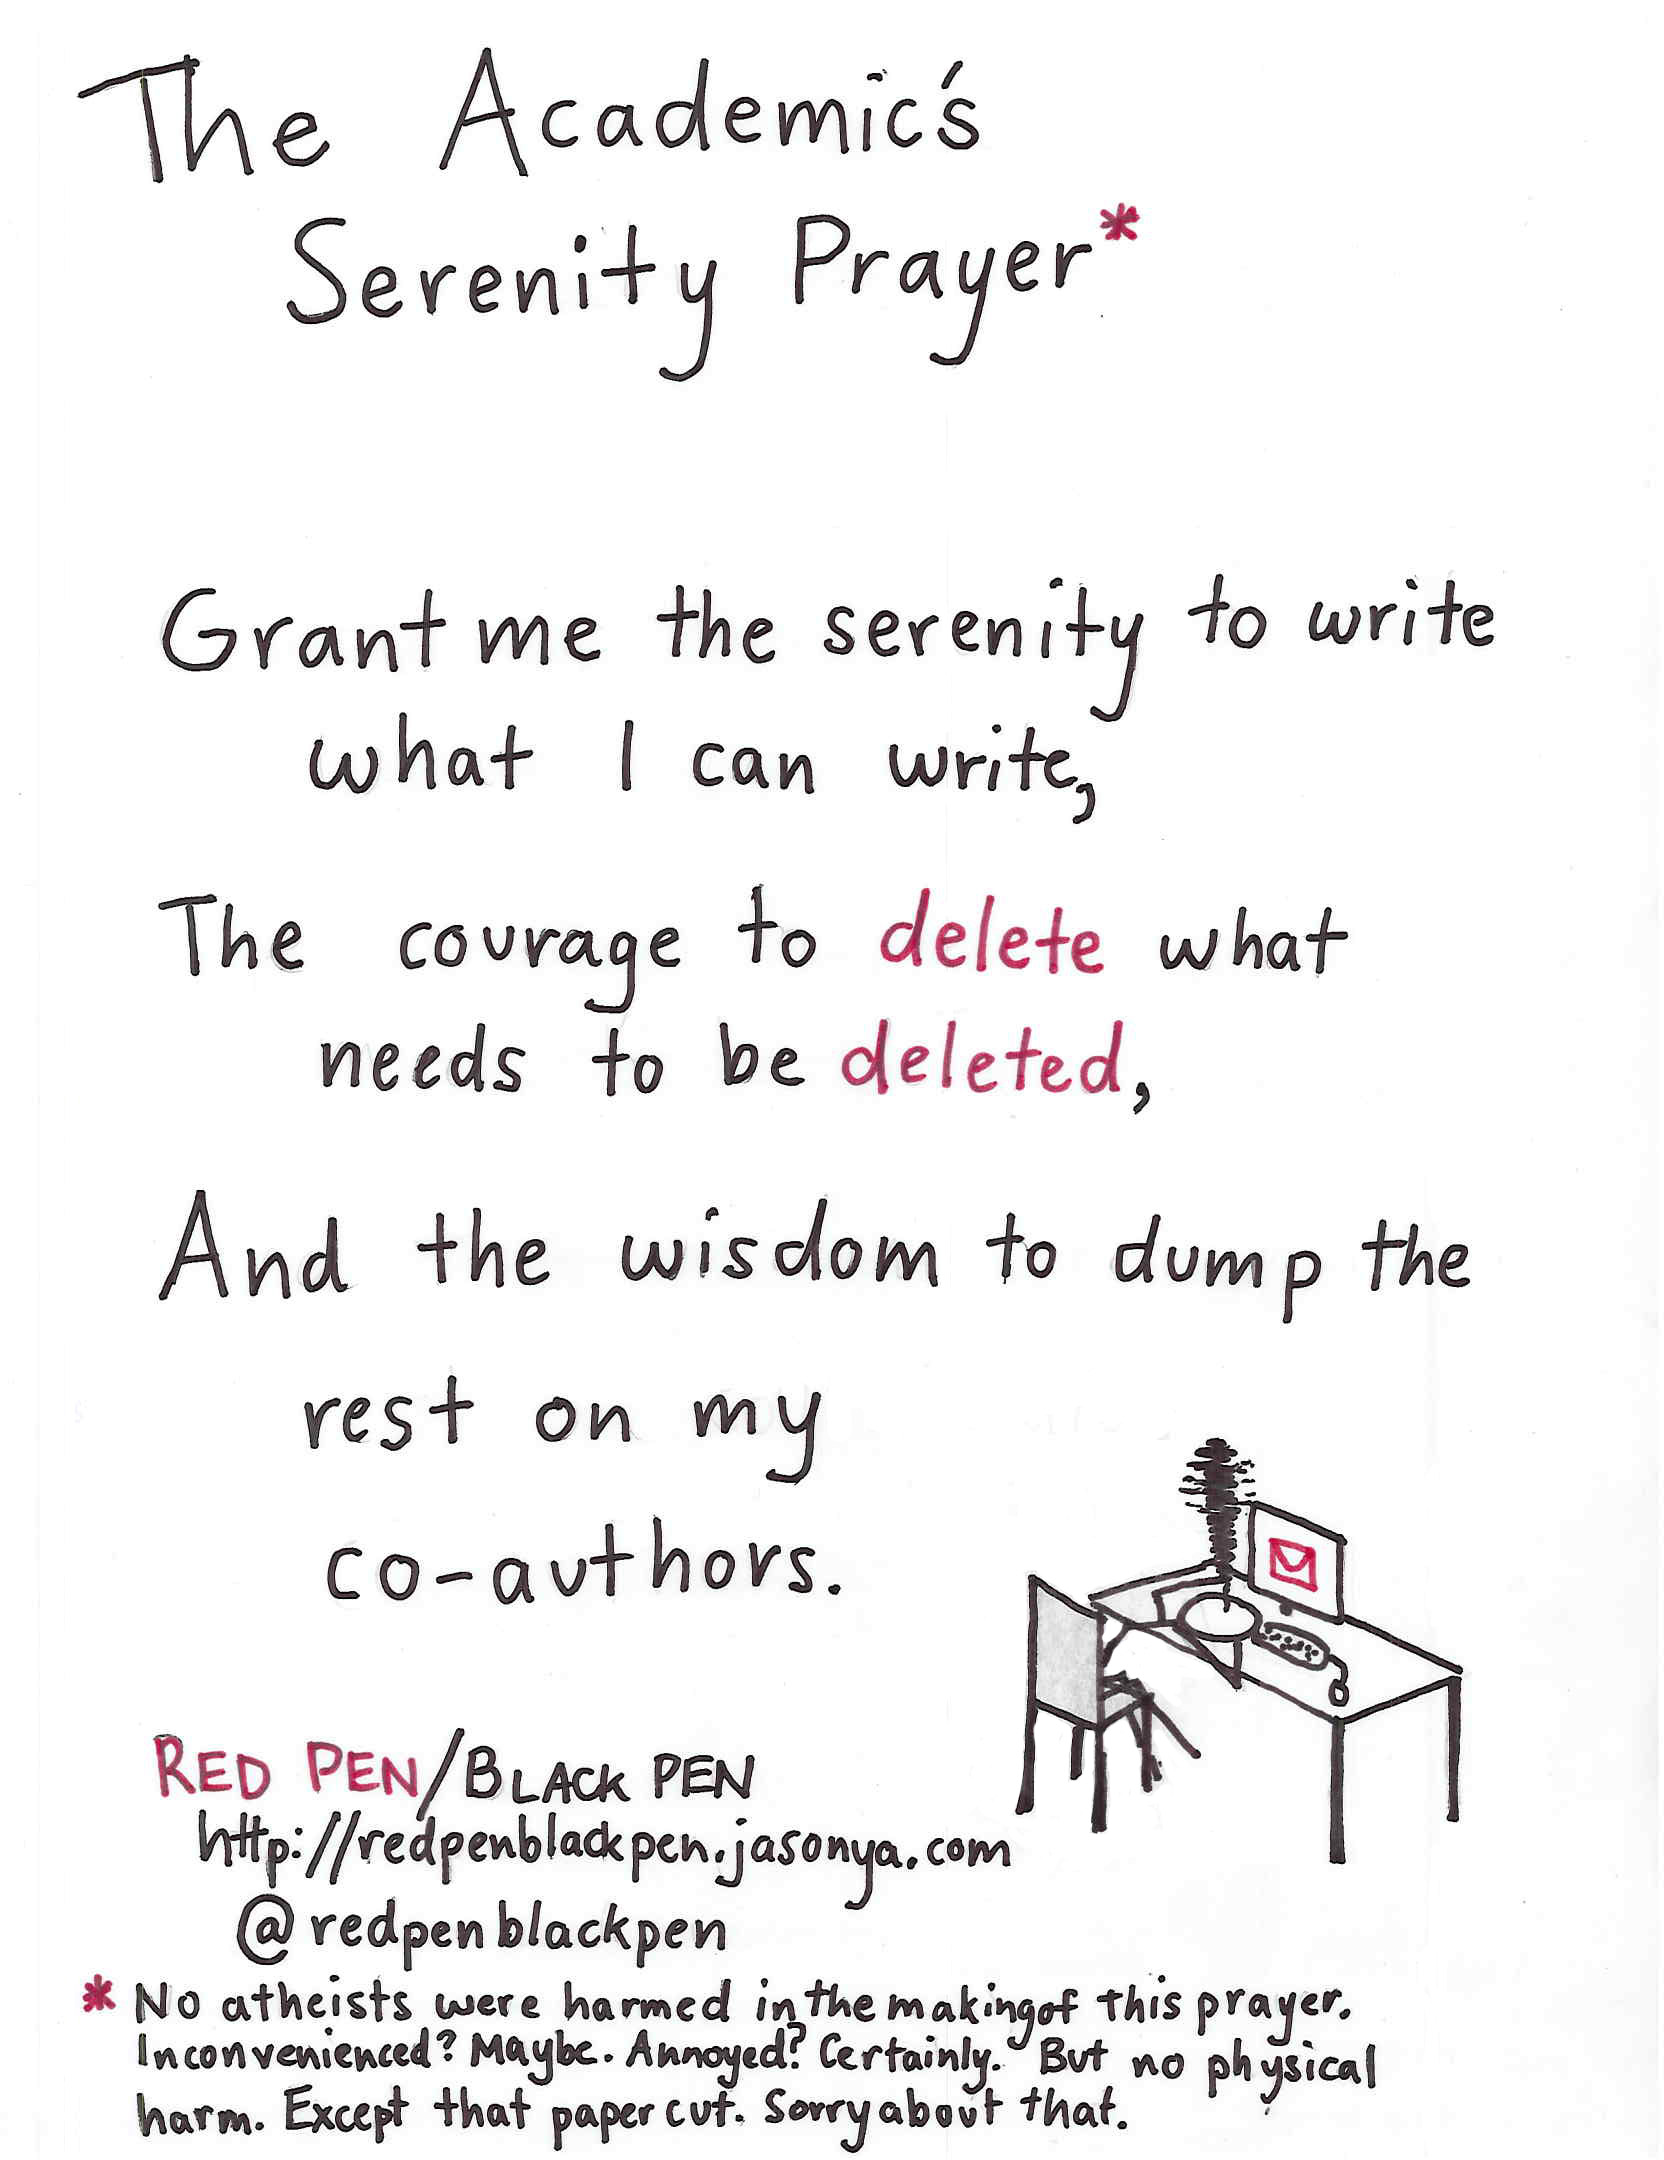 The Academic's
Serenity Prayer*
Grant me the serenity to write
what I can write,
The courage to delete what
needs to be deleted,
And the wisdom to dump the
rest on my
co-authors.
RED PEN/BLACK PEN
http://redpenblackpen.jasonya.com
@redpenblackpen
* No atheists were harmed in the making of this prayer.
Inconvenienced? Maybe. Annoyed? Certainly. But no physical
harm. Except that paper cut. Sorry about that.